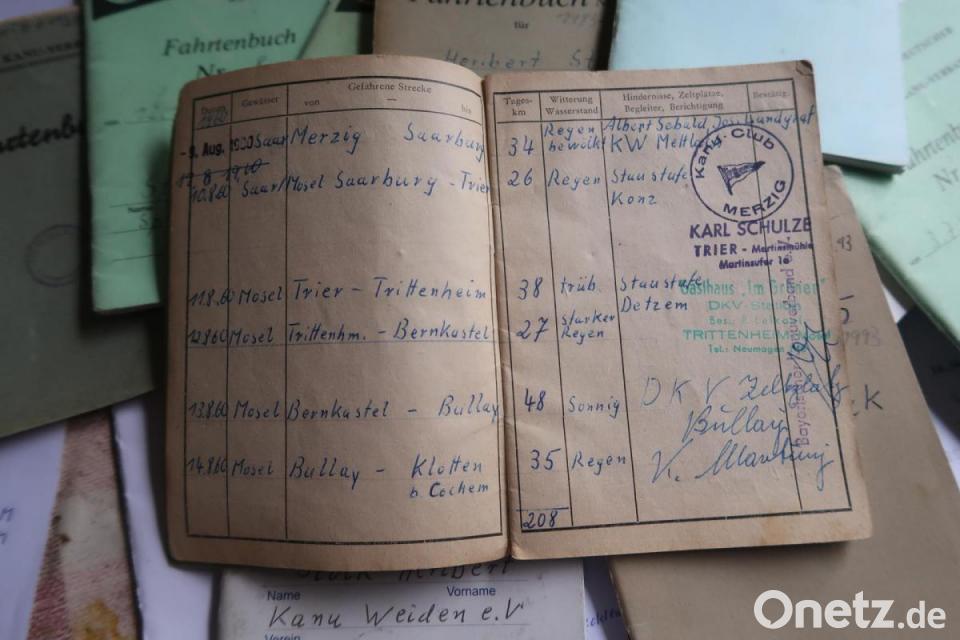 KANU-VER
Fahrtenbuch
Nr.
Fahrtenbuch
für
Heribert St
Fahrtenbuch
Nr.
DEUTSCHER
Datum
Gewässer
Gefahrene Strecke
von — bis
Tages-
km
Witterung
Wasserstand
Hindernisse, Zeltplätze,
Begleiter, Berichtigung
Bestätig.
1960
- 9. Aug. 1960 Saar Merzig Saarburg 34 Regen bewölkt Albert Sebald, KW Mettla
10.8.60 Saar/Mosel Saarburg - Trier 26 Regen Staustufe
Konz
11.8.60 Mosel Trier - Trittenheim 38 trüb. Staustufe
Detzem
12.8.60 Mosel Trittenhm. - Bernkastel 27 starker
Regen
13.8.60 Mosel Bernkastel - Bullay 48 Sonnig DKV Zeltplatz
Bullay
14.8.60 Mosel Bullay - Klotten 35 Regen
b. Cochem
208
Kanu-Club
MERZIG
KARL SCHULZE
TRIER - Martinsmühle
Martinsufer 16
Gasthaus "Im Brefier"
DKV-Station
TRITTENHEIM/Mosel
Tel.: Neumagen
1993
Stock Heribert
Name Vorname
Kanu Weiden e.V
Verein
Onetz.de